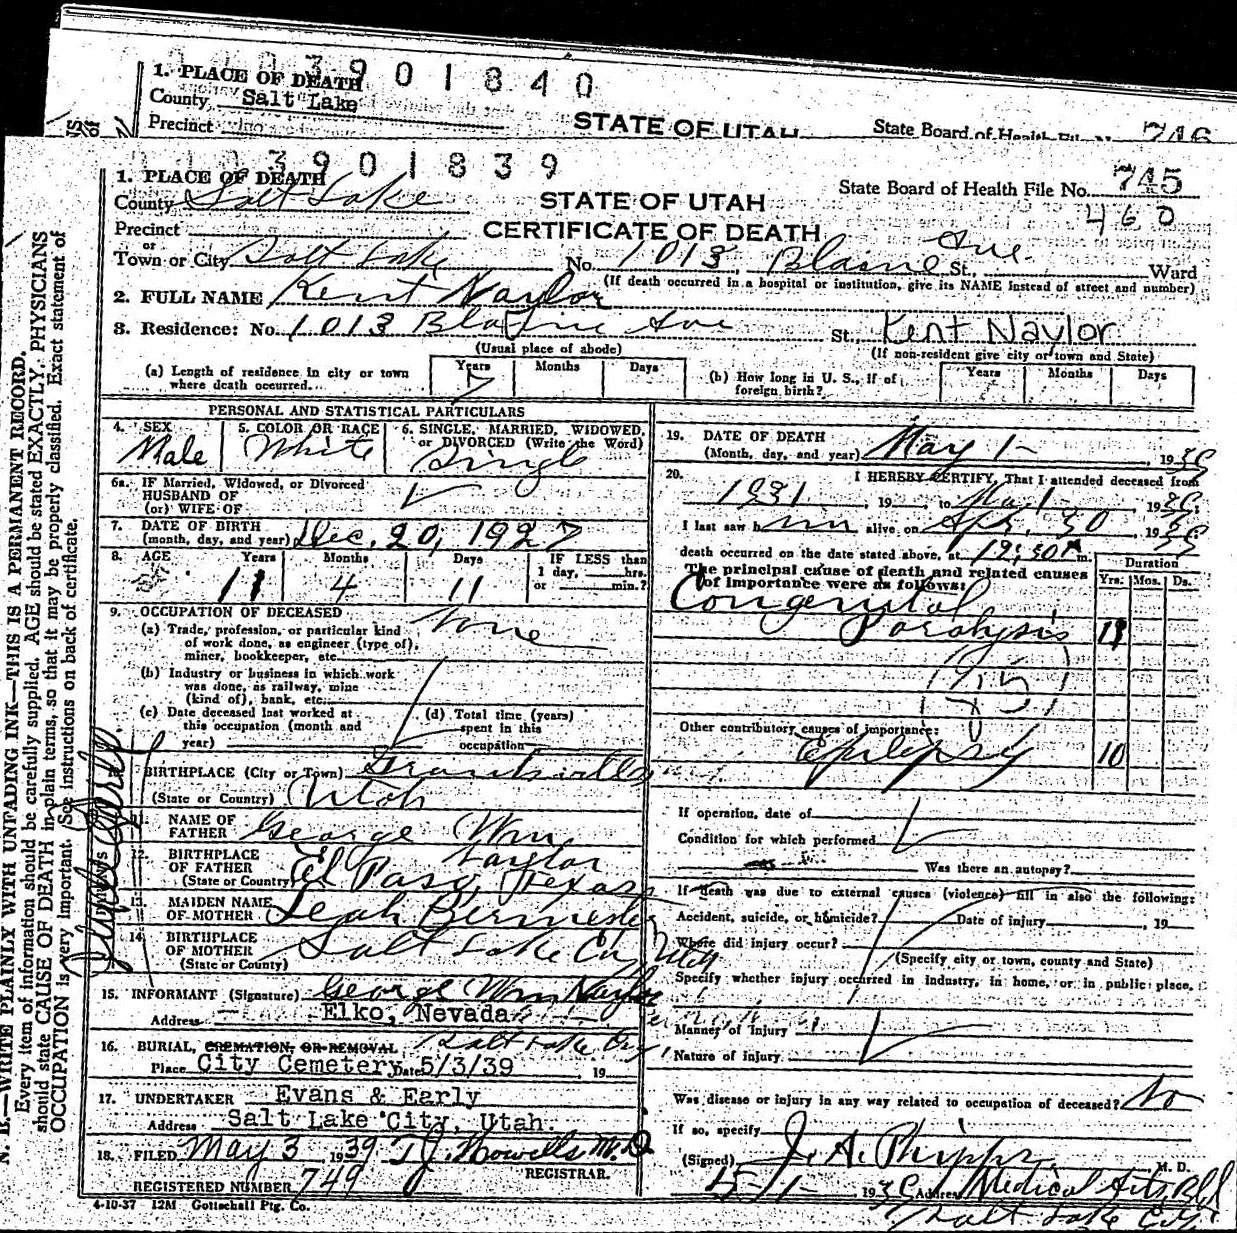 3901840
1. PLACE OF DEATH
County Salt Lake
Precinct
STATE OF UTAH
State Board of Health File No. 746
3901839
1. PLACE OF DEATH
County Salt Lake
STATE OF UTAH
State Board of Health File No. 745
460
Precinct
CERTIFICATE OF DEATH
or
Town or City Salt Lake No. 1013 Blaine Ave. St., Ward
(If death occurred in a hospital or institution, give its NAME instead of street and number)
2. FULL NAME Kent Naylor
3. Residence: No. 1013 Blaine Ave St. Kent Naylor
(Usual place of abode) (If non-resident give city or town and State)
(a) Length of residence in city or town where death occurred... Years 7 Months Days
(b) How long in U. S., if of foreign birth? Years Months Days
PERSONAL AND STATISTICAL PARTICULARS
4. SEX Male
5. COLOR OR RACE White
6. SINGLE, MARRIED, WIDOWED, or DIVORCED (Write the Word) Single
6a. IF Married, Widowed, or Divorced
HUSBAND OF
(or) WIFE OF
7. DATE OF BIRTH
(month, day, and year) Dec. 20, 1927
8. AGE Years 11 Months 4 Days 11 IF LESS than 1 day, hrs. or min.?
9. OCCUPATION OF DECEASED
(a) Trade, profession, or particular kind of work done, as engineer (type of), miner, bookkeeper, etc. None
(b) Industry or business in which work was done, as railway, mine (kind of), bank, etc.
(c) Date deceased last worked at this occupation (month and year)
(d) Total time (years) spent in this occupation
BIRTHPLACE (City or Town) Grantsville
(State or Country) Utah
11. NAME OF FATHER George Wm. Naylor
12. BIRTHPLACE OF FATHER
(State or Country) El Paso, Texas
13. MAIDEN NAME OF MOTHER Leah Bermester
14. BIRTHPLACE OF MOTHER
(State or County) Salt Lake City Utah
15. INFORMANT (Signature) George Wm Naylor
Address Elko, Nevada
16. BURIAL, CREMATION, OR REMOVAL Salt Lake City,
Place City Cemetery Date 5/3/39, 19
17. UNDERTAKER Evans & Early
Address Salt Lake City, Utah.
18. FILED May 3 1939 T.J. Howells M.D.
REGISTRAR.
REGISTERED NUMBER 749
4-10-37 12M Gottschall Ptg. Co.
19. DATE OF DEATH
(Month, day, and year) May 1- , 1939
20. I HEREBY CERTIFY, That I attended deceased from
1931, 19 , to May 1- , 1939.
I last saw him alive on Apr. 30, 1939
death occurred on the date stated above, at 12:30 A m.
The principal cause of death and related causes of importance were as follows:
Duration
Yrs. Mos. Ds.
Congenital
Paralysis 11
Other contributory causes of importance:
Epilepsy 10
If operation, date of
Condition for which performed
Was there an autopsy?
If death was due to external causes (violence) fill in also the following:
Accident, suicide, or homicide? Date of injury , 19
Where did injury occur?
(Specify city or town, county and State)
Specify whether injury occurred in industry, in home, or in public place.
Manner of injury
Nature of injury
Was disease or injury in any way related to occupation of deceased? No
If so, specify
(Signed) J. A. Phipps M. D.
5-1- 1939 Address Medical Arts Bld
Salt Lake City
N. B.—WRITE PLAINLY WITH UNFADING INK—THIS IS A PERMANENT RECORD.
Every item of information should be carefully supplied. AGE should be stated EXACTLY. PHYSICIANS
should state CAUSE OF DEATH in plain terms, so that it may be properly classified. Exact statement of
OCCUPATION is very important. See instructions on back of certificate.